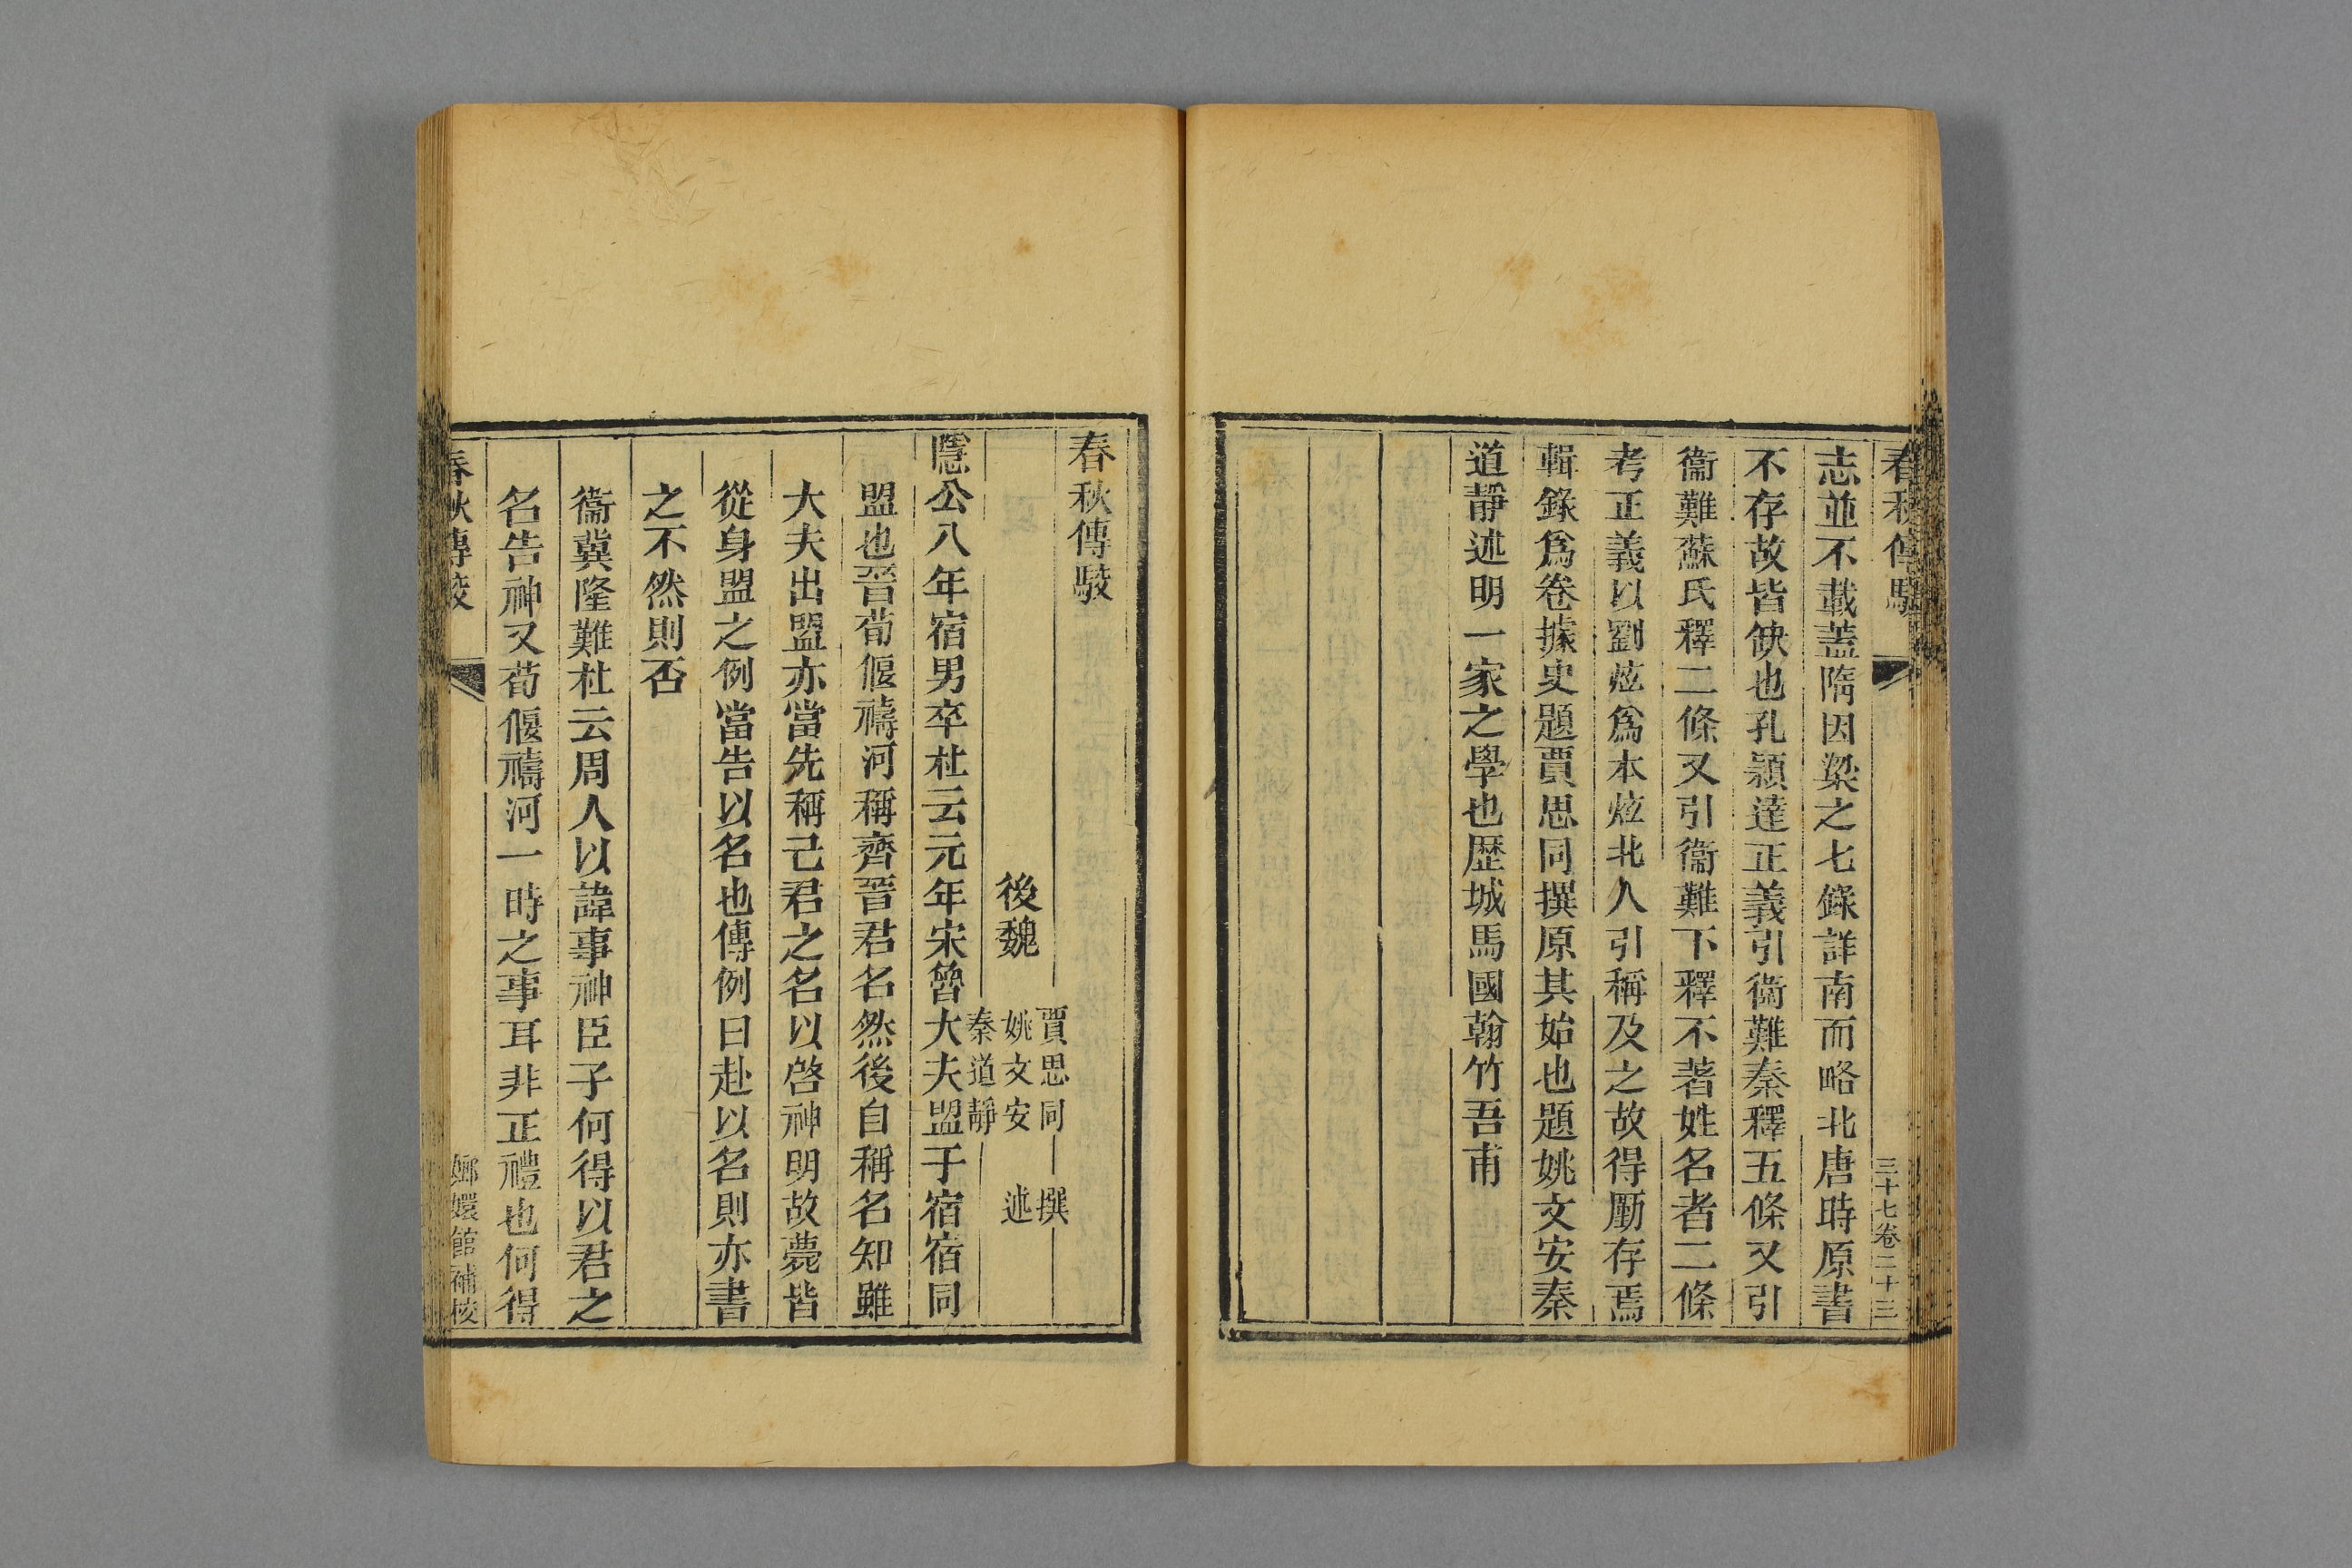 春秋傳駮
三十七卷二十三
志並不載蓋隋因梁之七錄詳南而略北唐時原書
不存故皆缺也孔穎達正義引衞難秦釋五條又引
衞難蘇氏釋二條又引衞難下釋不著姓名者二條
考正義以劉炫爲本炫北人引稱及之故得厪存焉
輯錄爲卷據史題賈思同撰原其始也題姚文安秦
道靜述明一家之學也歴城馬國翰竹吾甫
春秋傳駮
後魏
賈思同 撰
姚文安 述
秦道靜
隱公八年宿男卒杜云元年宋魯大夫盟于宿宿同
盟也晉荀偃禱河稱齊晉君名然後自稱名知雖
大夫出盟亦當先稱己君之名以啓神明故薨皆
從身盟之例當告以名也傳例曰赴以名則亦書
之不然則否
衞冀隆難杜云周人以諱事神臣子何得以君之
名告神又荀偃禱河一時之事耳非正禮也何得
春秋傳駮
嫏嬛館補校